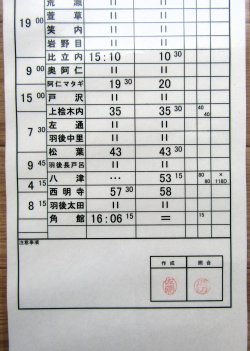 荒瀬 〃 〃
19 00
萱草 〃 〃
笑内 〃 〃
岩野目 〃 〃
比立内 15:10 10 30
9 00
奥阿仁 〃 〃
阿仁マタギ 19 30 20
15 00
戸沢 〃 〃
上桧木内 35 35 30 40 40
7 30
左通 〃 〃
羽後中里 〃 〃
松葉 43 43 30
9 45
羽後長戸呂 〃 〃
八津 … 53 15 80 80 × 118D
4 15
西明寺 57 30 58
8 15
羽後太田 〃 〃
角館 16:06 15 = 15
注意事項
作成 照合